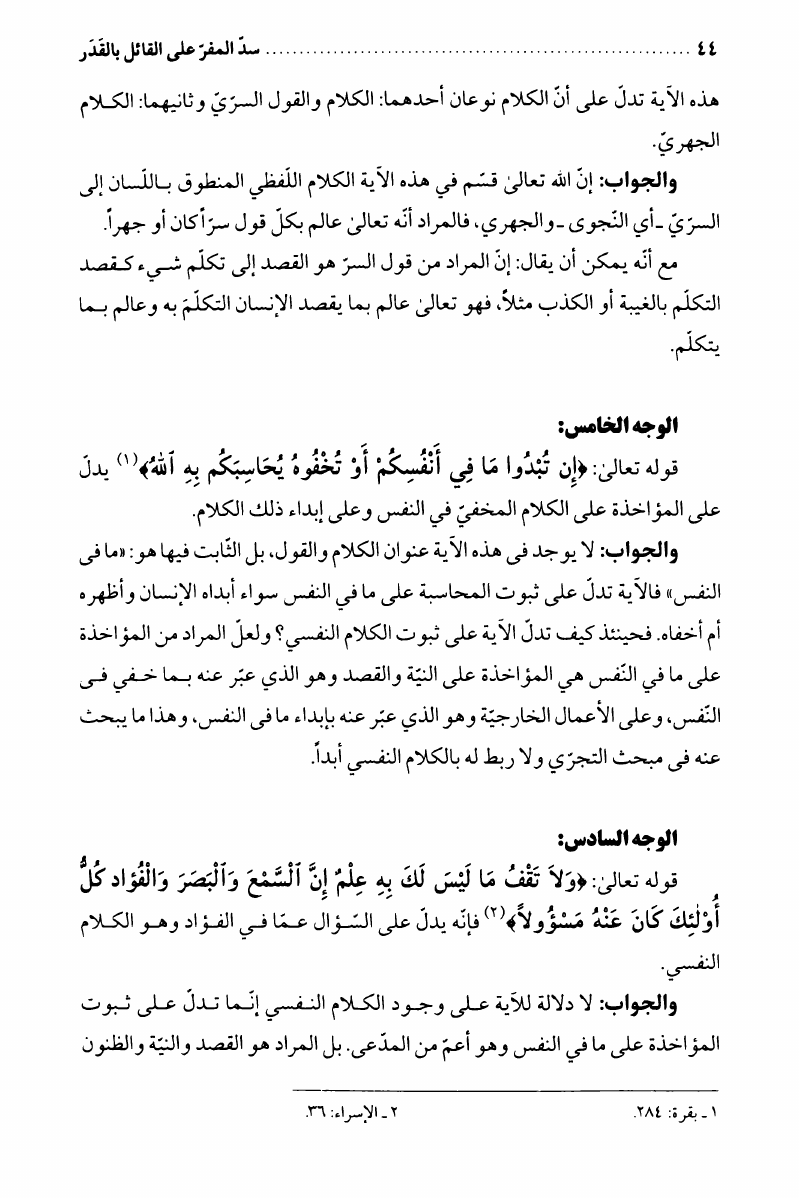 ٤٤ ............................................................... سدّ المفرّ على القائل بالقَدَر
هذه الآية تدلّ على أنّ الكلام نوعان أحدهما: الكلام والقول السرّيّ وثانيهما: الكلام
الجهريّ.
والجواب: إنّ الله تعالىٰ قسّم في هذه الآية الكلام اللّفظي المنطوق باللّسان إلى
السرّيّ -أي النّجوى -والجهري، فالمراد أنّه تعالىٰ عالم بكلّ قول سرّاً كان أو جهراً.
مع أنّه يمكن أن يقال: إنّ المراد من قول السرّ هو القصد إلى تكلّم شيء كقصد
التكلّم بالغيبة أو الكذب مثلاً، فهو تعالىٰ عالم بما يقصد الإنسان التكلّمَ به وعالم بما
يتكلّم.
الوجه الخامس:
قوله تعالىٰ: ﴿إِن تُبْدُوا مَا فِي أَنْفُسِكُمْ أَوْ تُخْفُوهُ يُحَاسِبَكُم بِهِ ٱللهُ﴾(١) يدلّ
على المؤاخذة على الكلام المخفيّ في النفس وعلى إبداء ذلك الكلام.
والجواب: لا يوجد فى هذه الآية عنوان الكلام والقول، بل الثّابت فيها هو: «ما فى
النفس» فالآية تدلّ على ثبوت المحاسبة على ما في النفس سواء أبداه الإنسان وأظهره
أم أخفاه. فحينئذ كيف تدلّ الآية على ثبوت الكلام النفسي؟ ولعلّ المراد من المؤاخذة
على ما في النّفس هي المؤاخذة على النيّة والقصد وهو الذي عبّر عنه بما خفي فى
النّفس، وعلى الأعمال الخارجيّة وهو الذي عبّر عنه بإبداء ما فى النفس، وهذا ما يبحث
عنه فى مبحث التجرّي ولا ربط له بالكلام النفسي أبداً.
الوجه السادس:
قوله تعالىٰ: ﴿وَلاَ تَقْفُ مَا لَيْسَ لَكَ بِهِ عِلْمٌ إِنَّ ٱلسَّمْعَ وَٱلْبَصَرَ وَالْفُؤَاد كُلُّ
أُوْلٰئِكَ كَانَ عَنْهُ مَسْؤُولاً﴾(٢) فإنّه يدلّ على السّؤال عمّا في الفؤاد وهو الكلام
النفسي.
والجواب: لا دلالة للآية على وجود الكلام النفسي إنّما تدلّ على ثبوت
المؤاخذة على ما في النفس وهو أعمّ من المدّعى. بل المراد هو القصد والنيّة والظنون
١ ـ بقرة: ٢٨٤. ٢ ـ الإسراء: ٣٦.